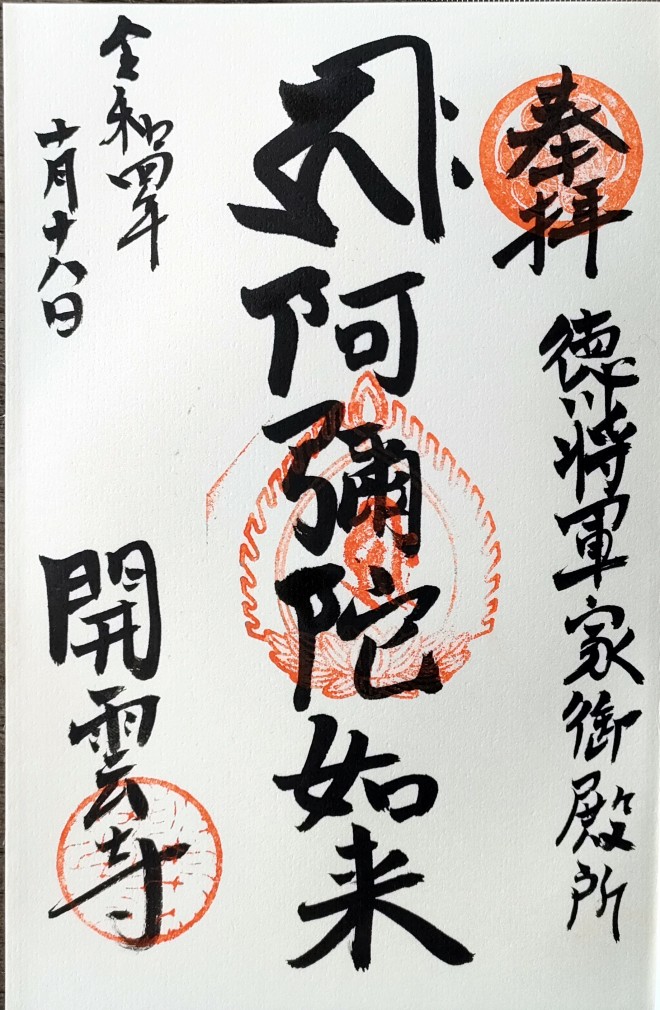 奉拝
徳川将軍家御殿所
𑖮𑖿𑖨𑖱𑖾
阿彌陀如来
令和四年
十月十八日
開雲寺